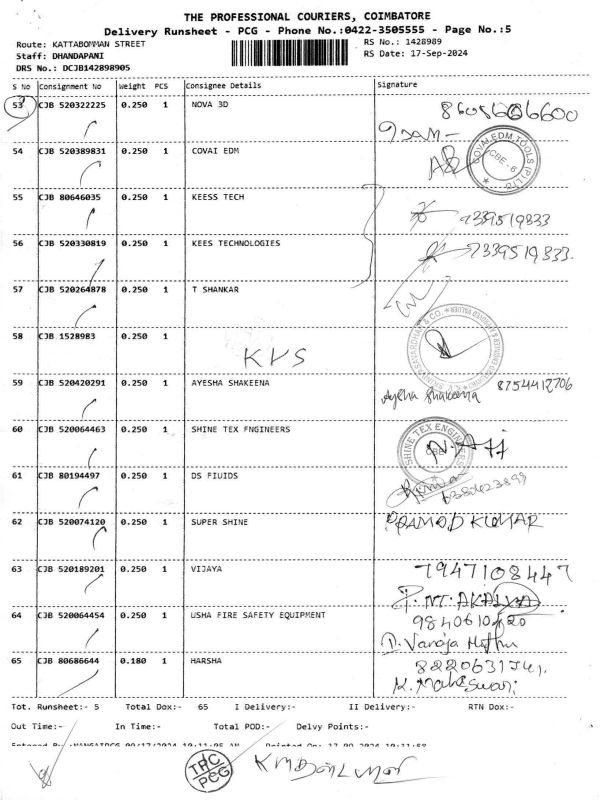 THE PROFESSIONAL COURIERS, COIMBATORE
Delivery Runsheet - PCG - Phone No.:0422-3505555 - Page No.:5
Route: KATTABOMMAN STREET RS No.: 1428989
Staff: DHANDAPANI RS Date: 17-Sep-2024
DRS No.: DCJB142898905
S No Consignment No Weight PCS Consignee Details Signature
53 CJB 520322225 0.250 1 NOVA 3D
54 CJB 520389831 0.250 1 COVAI EDM
COVAI EDM TOOLS (P) LTD. CBE - 6
55 CJB 80646035 0.250 1 KEESS TECH 9339519833
56 CJB 520330819 0.250 1 KEES TECHNOLOGIES 7339519833.
57 CJB 520264878 0.250 1 T SHANKAR
58 CJB 1528983 0.250 1
KVS
59 CJB 520420291 0.250 1 AYESHA SHAKEENA Ayesha Shakeena 8754412706
60 CJB 520064463 0.250 1 SHINE TEX FNGINEERS
SHINE TEX ENGINEERS
61 CJB 80194497 0.250 1 DS FIUIDS
62 CJB 520074120 0.250 1 SUPER SHINE PRAMOD KUMAR
63 CJB 520189201 0.250 1 VIJAYA 7947108447
64 CJB 520064454 0.250 1 USHA FIRE SAFETY EQUIPMENT
65 CJB 80686644 0.180 1 HARSHA
Tot. Runsheet:- 5 Total Dox:- 65 I Delivery:- II Delivery:- RTN Dox:-
Out Time:- In Time:- Total POD:- Delvy Points:-
TPC
PCG